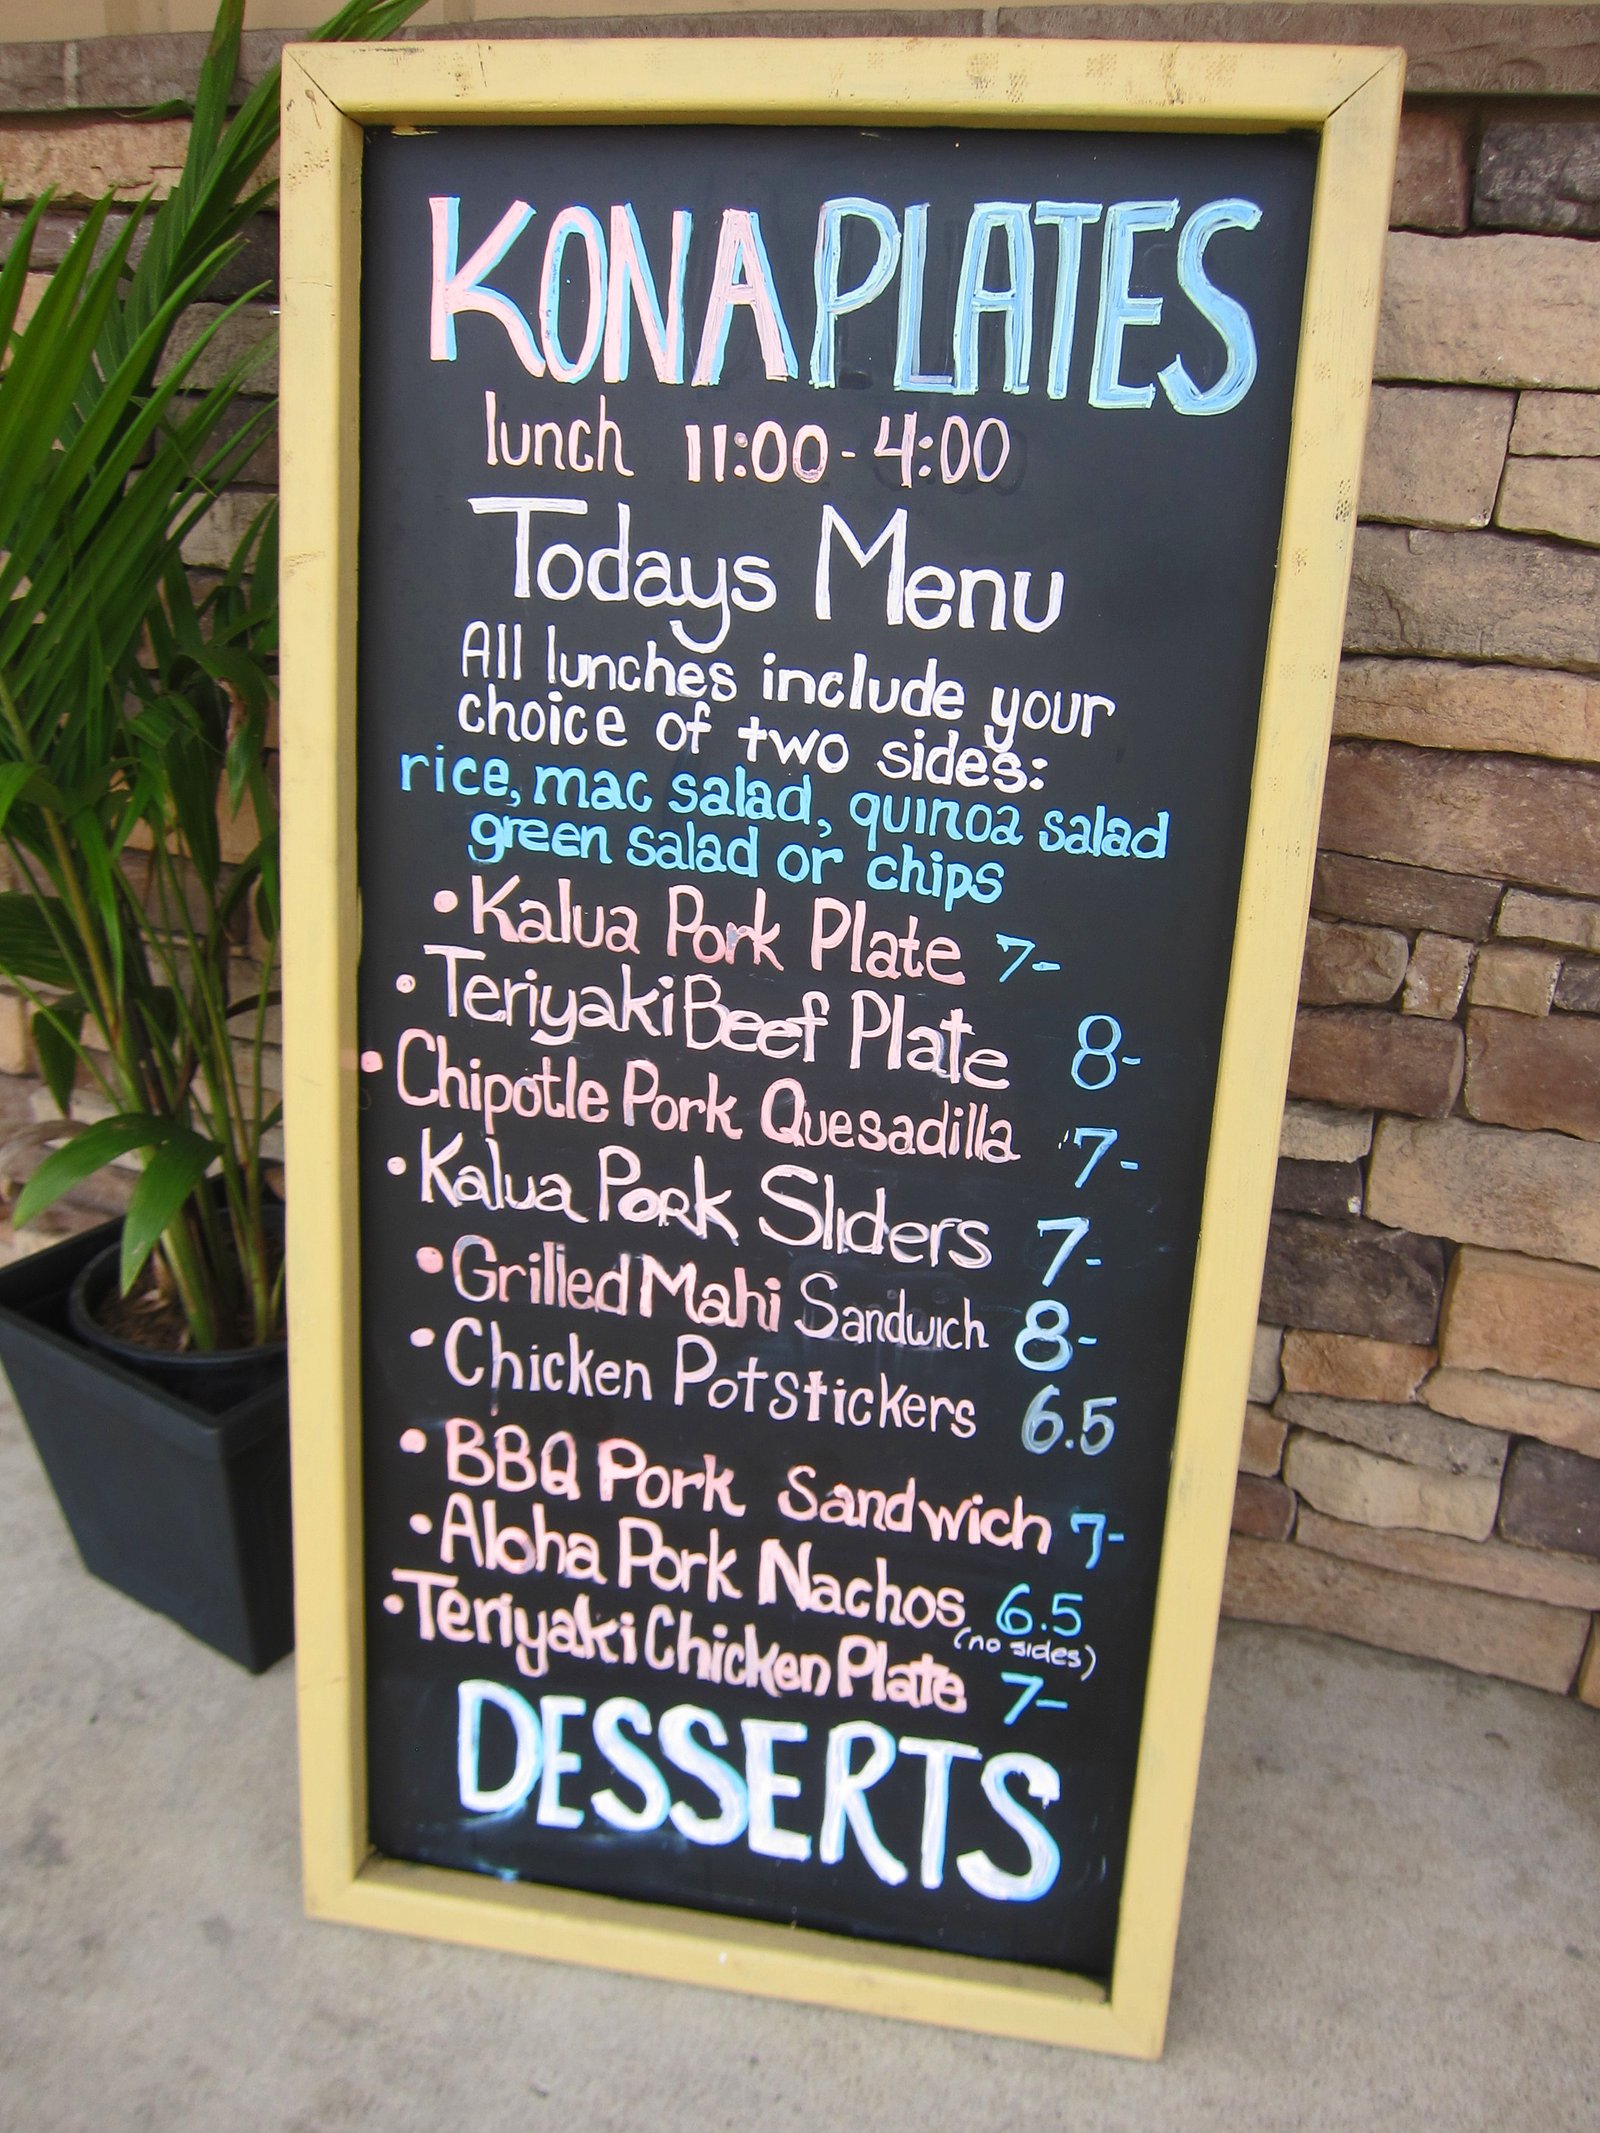 KONA PLATES
lunch 11:00 - 4:00
Todays Menu
All lunches include your
choice of two sides:
rice, mac salad, quinoa salad
green salad or chips
• Kalua Pork Plate 7-
• Teriyaki Beef Plate 8-
• Chipotle Pork Quesadilla 7-
• Kalua Pork Sliders 7-
• Grilled Mahi Sandwich 8-
• Chicken Potstickers 6.5
• BBQ Pork Sandwich 7-
• Aloha Pork Nachos 6.5
(no sides)
• Teriyaki Chicken Plate 7-
DESSERTS